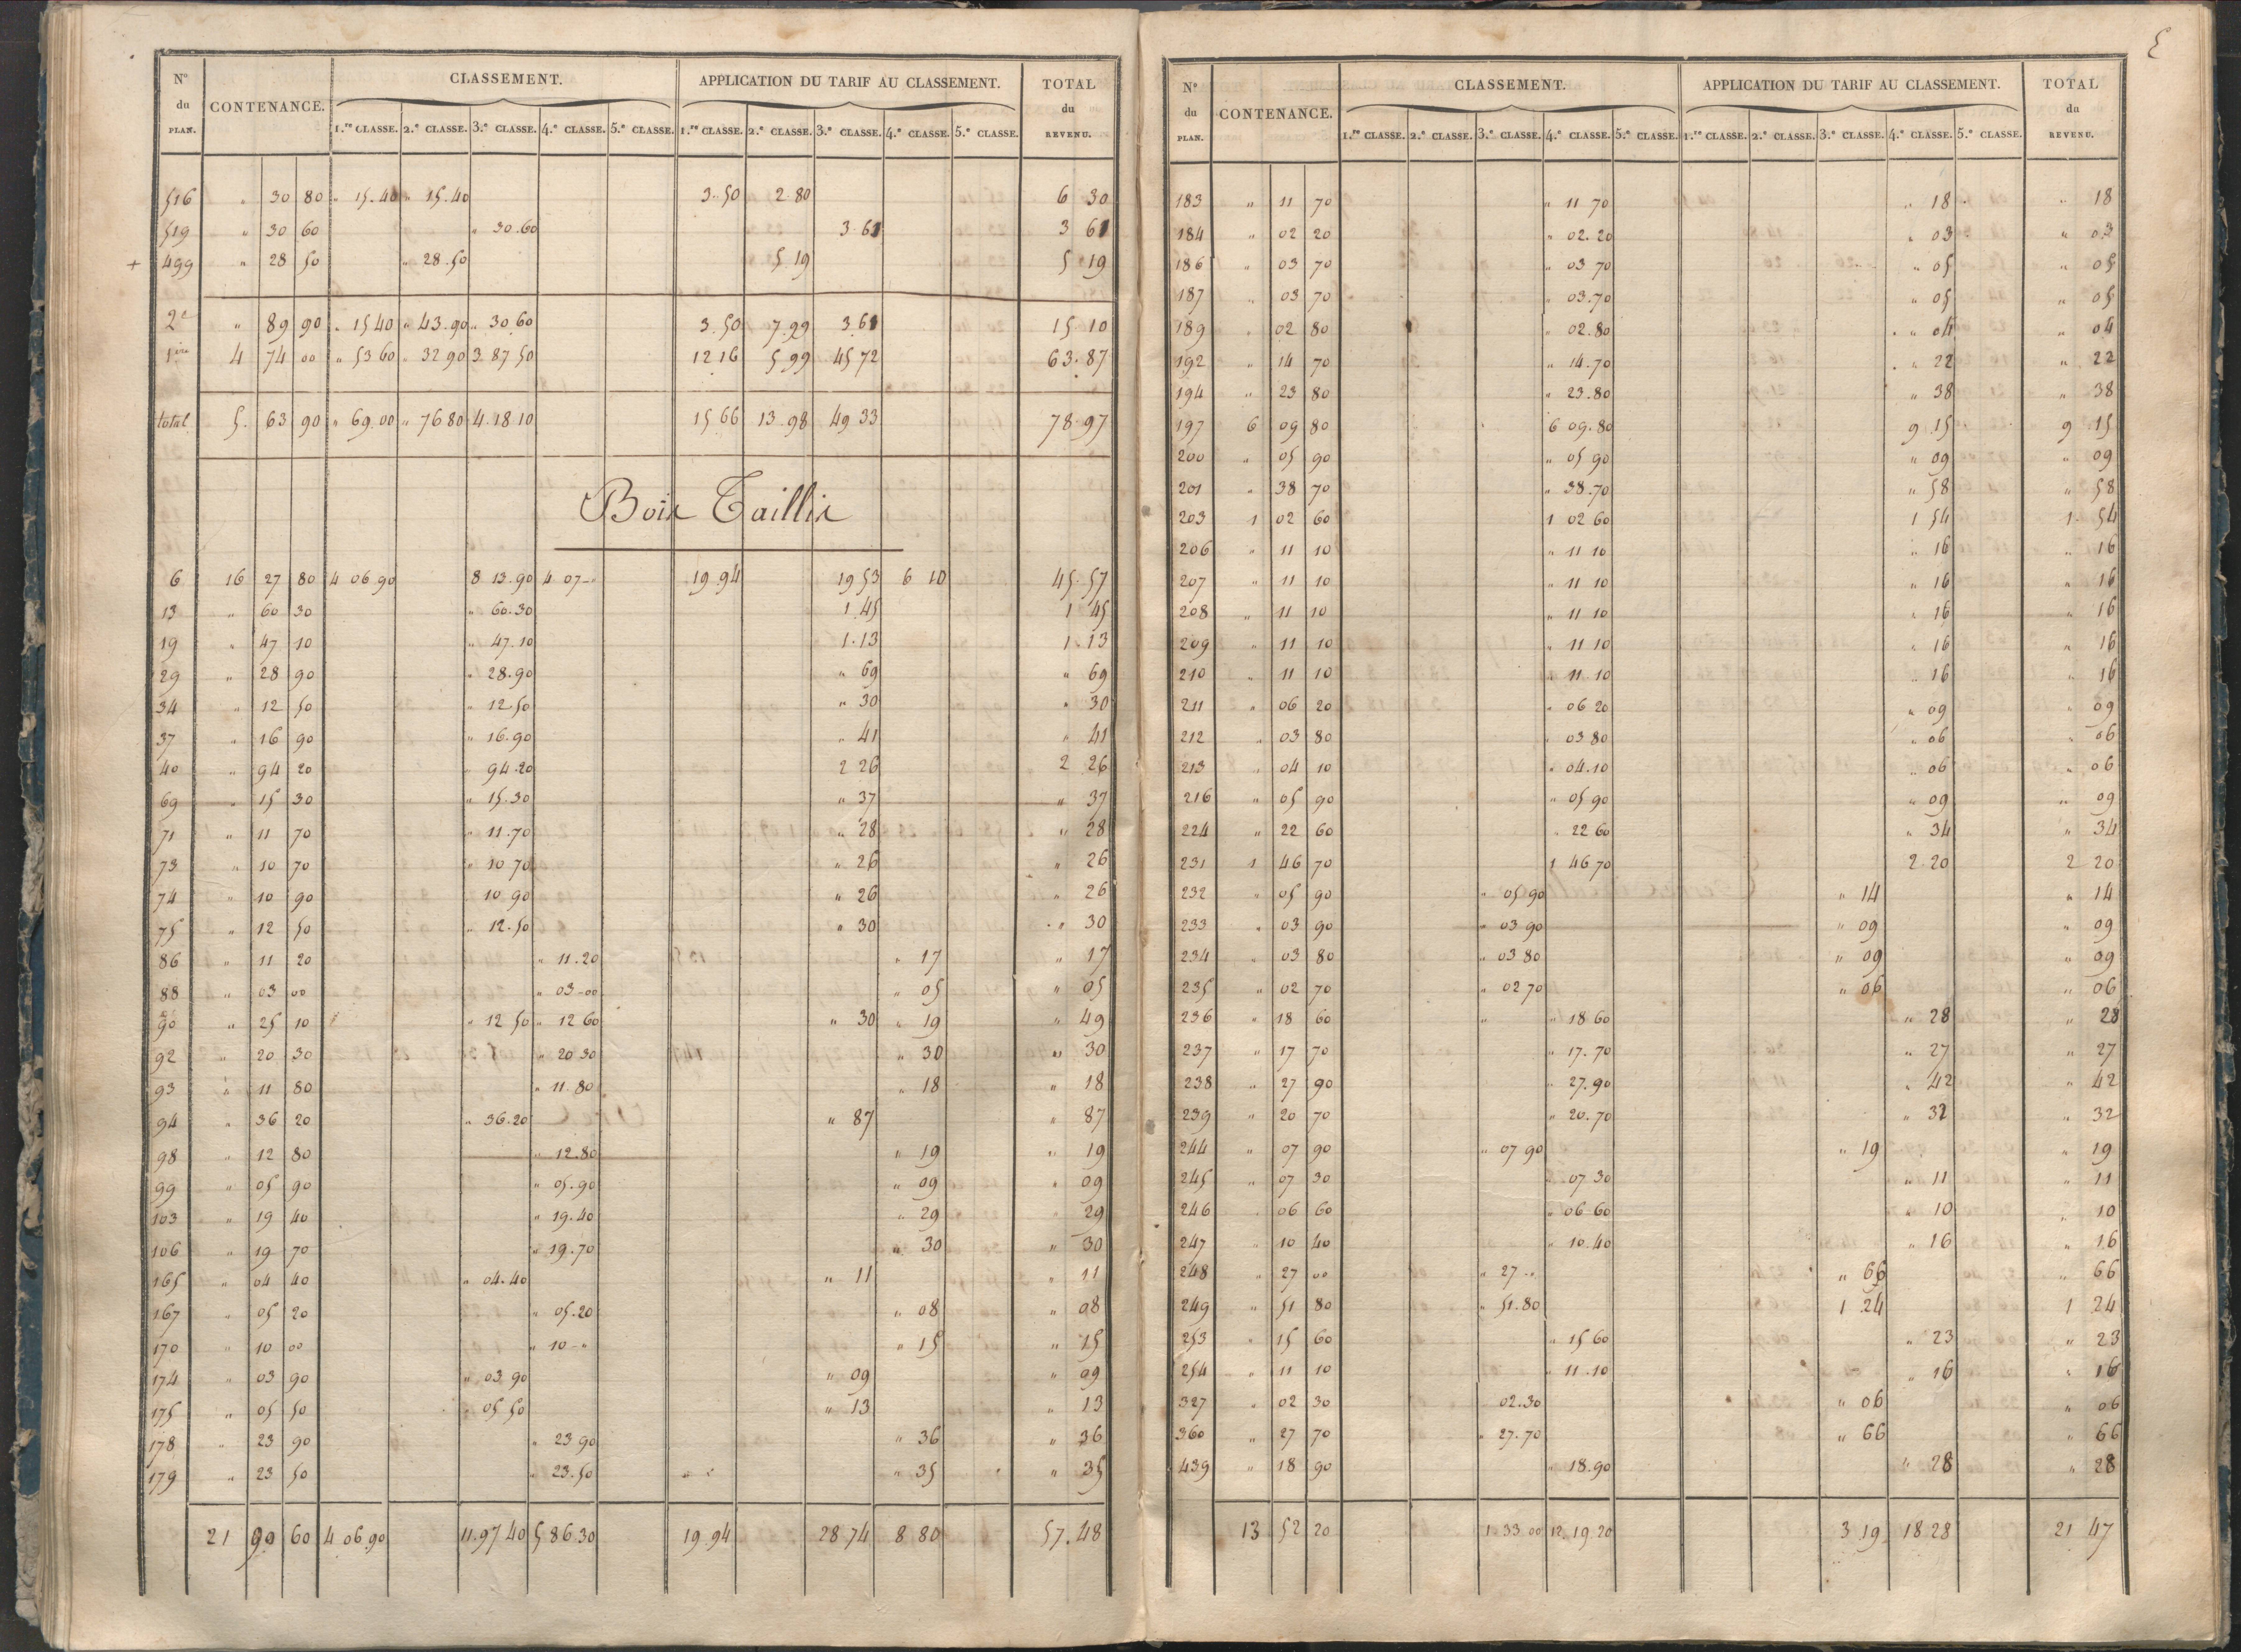 N.º du PLAN. CONTENANCE. CLASSEMENT. APPLICATION DU TARIF AU CLASSEMENT. TOTAL du REVENU.
1.re CLASSE. 2.e CLASSE. 3.e CLASSE. 4.e CLASSE. 5.e CLASSE. 1.re CLASSE. 2.e CLASSE. 3.e CLASSE. 4.e CLASSE. 5.e CLASSE.
516 " 30 80 " 15.40 " 15.40 3.50 2.80 6 30
519 " 30 60 " 30.60 3.61 3 61
+ 499 " 28 50 " 28.50 5 19 5 19
2e " 89 90 " 15 40 " 43.90 " 30.60 3.50 7.99 3.61 15 10
1ere 4 74 00 " 53 60 " 32 90 3.87 50 12 16 5 99 45 72 63.87
total 5. 63 90 " 69.00 " 76 80 4.18 10 15 66 13.98 49 33 78.97
Bois Taillis
6 16 27 80 4 06.90 8 13.90 4 07 - " 19 94 19 53 6 10 45.57
13 " 60 30 " 60.30 1 45 1 45
19 " 47 10 " 47.10 1.13 1.13
29 " 28 90 " 28.90 " 69 " 69
34 " 12 50 " 12.50 " 30 " 30
37 " 16 90 " 16.90 " 41 " 41
40 " 94 20 " 94.20 2 26 2 26
69 " 15 30 " 15.30 " 37 " 37
71 " 11 70 " 11.70 " 28 " 28
73 " 10 70 " 10 70 " 26 " 26
74 " 10 90 " 10 90 " 26 " 26
75 " 12 50 " 12.50 " 30 " 30
86 " 11 20 " 11.20 " 17 " 17
88 " 03 00 " 03-00 " 05 " 05
90 " 25 10 " 12 50 " 12 60 " 30 " 19 " 49
92 " 20 30 " 20 30 " 30 " 30
93 " 11 80 " 11.80 " 18 " 18
94 " 36 20 " 36.20 " 87 " 87
98 " 12 80 " 12.80 " 19 " 19
99 " 05 90 " 05.90 " 09 " 09
103 " 19 40 " 19.40 " 29 " 29
106 " 19 70 " 19.70 " 30 " 30
165 " 04 40 " 04.40 " 11 " 11
167 " 05 20 " 05.20 " 08 " 08
170 " 10 00 " 10 - " " 15 " 15
174 " 03 90 " 03 90 " 09 " 09
175 " 05 50 " 05 50 " 13 " 13
178 " 23 90 " 23 90 " 36 " 36
179 " 23 50 " 23.50 " 35 " 35
21 90 60 4 06.90 11.97 40 5 86.30 19.94 28 74 8 80 57.48
N.º du PLAN. CONTENANCE. CLASSEMENT. APPLICATION DU TARIF AU CLASSEMENT. TOTAL du REVENU.
1.re CLASSE. 2.e CLASSE. 3.e CLASSE. 4.e CLASSE. 5.e CLASSE. 1.re CLASSE. 2.e CLASSE. 3.e CLASSE. 4.e CLASSE. 5.e CLASSE.
183 " 11 70 " 11 70 " 18 " 18
184 " 02 20 " 02.20 " 03 " 03
186 " 03 70 " 03 70 " 05 " 05
187 " 03 70 " 03.70 " 05 " 05
189 " 02 80 " 02.80 " 04 " 04
192 " 14 70 " 14.70 " 22 " 22
194 " 23 80 " 23.80 " 38 " 38
197 6 09 80 6 09.80 9 15 9 15
200 " 05 90 " 05 90 " 09 " 09
201 " 38 70 " 38.70 " 58 " 58
203 1 02 60 1 02 60 1 54 1. 54
206 " 11 10 " 11 10 " 16 " 16
207 " 11 10 " 11 10 " 16 " 16
208 " 11 10 " 11 10 " 16 " 16
209 " 11 10 " 11 10 " 16 " 16
210 " 11 10 " 11.10 " 16 " 16
211 " 06 20 " 06 20 " 09 " 09
212 " 03 80 " 03 80 " 06 " 06
213 " 04 10 " 04.10 " 06 " 06
216 " 05 90 " 05 90 " 09 " 09
224 " 22 60 " 22 60 " 34 " 34
231 1 46 70 1 46 70 2.20 2 20
232 " 05 90 " 05 90 " 14 " 14
233 " 03 90 " 03 90 " 09 " 09
234 " 03 80 " 03 80 " 09 " 09
235 " 02 70 " 02 70 " 06 " 06
236 " 18 60 " " 18 60 " 28 " 28
237 " 17 70 " 17.70 " 27 " 27
238 " 27 90 " 27.90 " 42 " 42
239 " 20 70 " 20.70 " 32 " 32
244 " 07 90 " 07 90 " 19 " 19
245 " 07 30 " 07 30 " 11 " 11
246 " 06 60 " 06 60 " 10 " 10
247 " 10 40 " 10.40 " 16 " 16
248 " 27 00 " 27 - " " 66 " 66
249 " 51 80 " 51.80 1 24 1 24
253 " 15 60 " 15 60 " 23 " 23
254 " 11 10 " 11.10 " 16 " 16
327 " 02 30 02.30 " 06 " 06
360 " 27 70 " 27.70 " 66 " 66
439 " 18 90 " 18.90 " 28 " 28
13 52 20 1.33 00 12.19.20 3 19 18 28 21 47